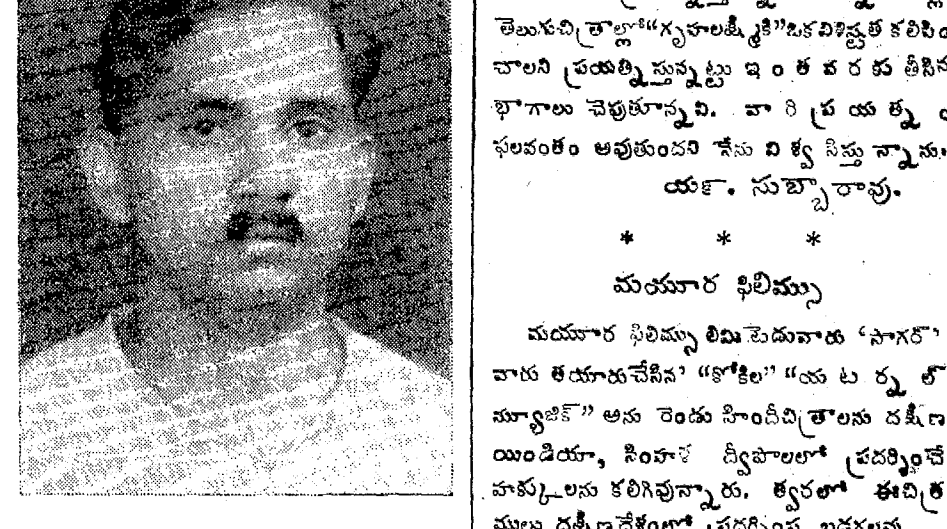 తెలుగుచిత్రాల్లో “గృహలక్ష్మికి” ఒక విశిష్టత కలిపిం
చాలని ప్రయత్నిస్తున్నట్టు ఇంతవరకు తీసిన
భాగాలు చెపుతూన్నవి. వారి ప్రయత్నం
ఫలవంతం అవుతుందని నేను విశ్వసిస్తున్నాను.
యణ. సుబ్బారావు.
* * *
మయూర ఫిలిమ్సు
మయూర ఫిలిమ్సు లిమిటెడువారు ‘సాగర్’
వారు తయారుచేసిన’ “కోకిల” “యటర్నల్
మ్యూజిక్” అను రెండు హిందీచిత్రాలను దక్షిణ
యిండియా, సింహళ ద్వీపాలలో ప్రదర్శించే
హక్కులను కలిగివున్నారు. త్వరలో ఈచిత్ర
ములు దక్షిణదేశంలో ప్రదర్శింప